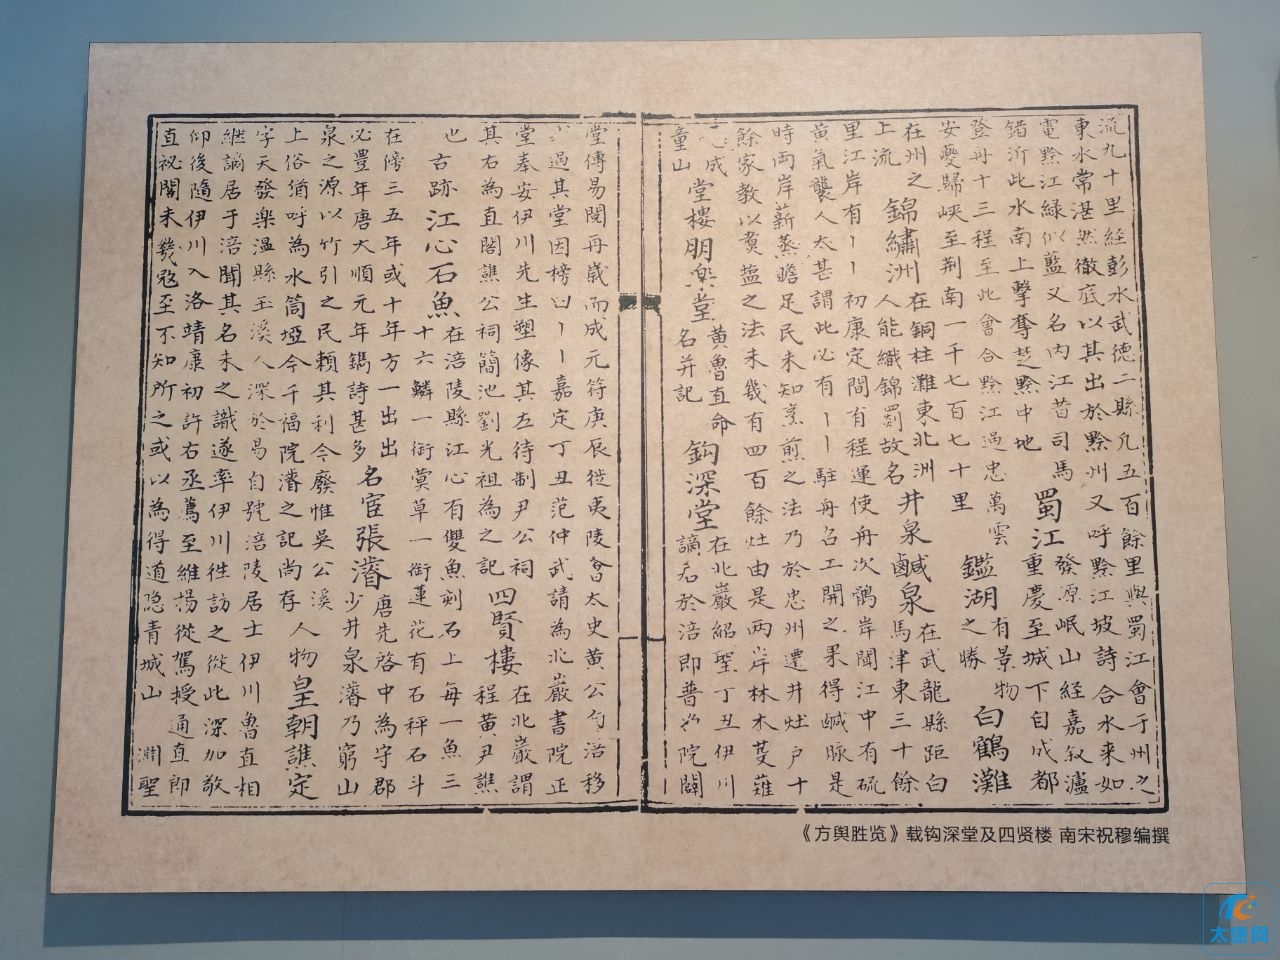 流九十里經彭水武德二縣凡五百餘里與蜀江會于州之
東水常湛然徹底以其出於黔州又呼黔江坡詩合水来如
電黔江綠似藍又名内江昔司馬
錯泝此水南上擊奪楚黔中地
蜀江
發源岷山經嘉叙瀘
重慶至城下自成都
登舟十三程至此會合黔江過忠萬雲
安夔歸峽至荆南一千七百七十里
鑑湖
有景物
之勝
白鶴灘
在州之
上流
錦繡洲
在銅柱灘東北洲
人能織錦罽故名
井泉
鹹泉
在武龍縣距白
馬津東三十餘
里江岸有丨丨初康定間有程運使舟次鶻岸聞江中有硫
黄氣襲人太甚謂此必有丨丨駐舟召工開之果得鹹脉是
時両岸薪蒸贍足民未知烹煎之法乃於忠州遷井灶户十
餘家教以煑盐之法未幾有四百餘灶由是两岸林木芟薙
成
童山
堂樓
朋樂堂
黄魯直命
名并記
鈎深堂
在北巖紹聖丁丑伊川
謫居於涪即普院闢
堂傳易閲再嵗而成元符庚辰徙夷陵會太史黄公自涪移
過其堂因榜曰丨丨嘉定丁丑范仲武請為北巖書院正
堂奉安伊川先生塑像其左待制尹公祠
其右為直閣譙公祠簡池劉光祖為之記
四賢樓
在北巖謂
程黄尹譙
也
古跡
江心石魚
在涪陵縣江心有雙魚刻石上每一魚三
十六鱗一銜蓂草一銜蓮花有石秤石斗
在傍三五年或十年方一出出
必豊年唐大順元年鐫詩甚多
名宦
張濬
唐先啓中為守郡
少井泉濬乃窮山
泉之源以竹引之民賴其利今廢惟吳公溪
上俗猶呼為水筒埡今千福院濬之記尚存
人物
皇朝譙定
字天發樂温縣玉溪人深於易自號涪陵居士伊川魯直相
継謫居于涪聞其名未之識遂率伊川徃訪之從此深加敬
仰後隨伊川入洛靖康初許右丞薦至維揚從駕授通直郎
直祕閣未幾寇至不知所之或以為得道隐青城山
淵聖
《方舆胜览》载钩深堂及四贤楼 南宋祝穆编撰
太唐网